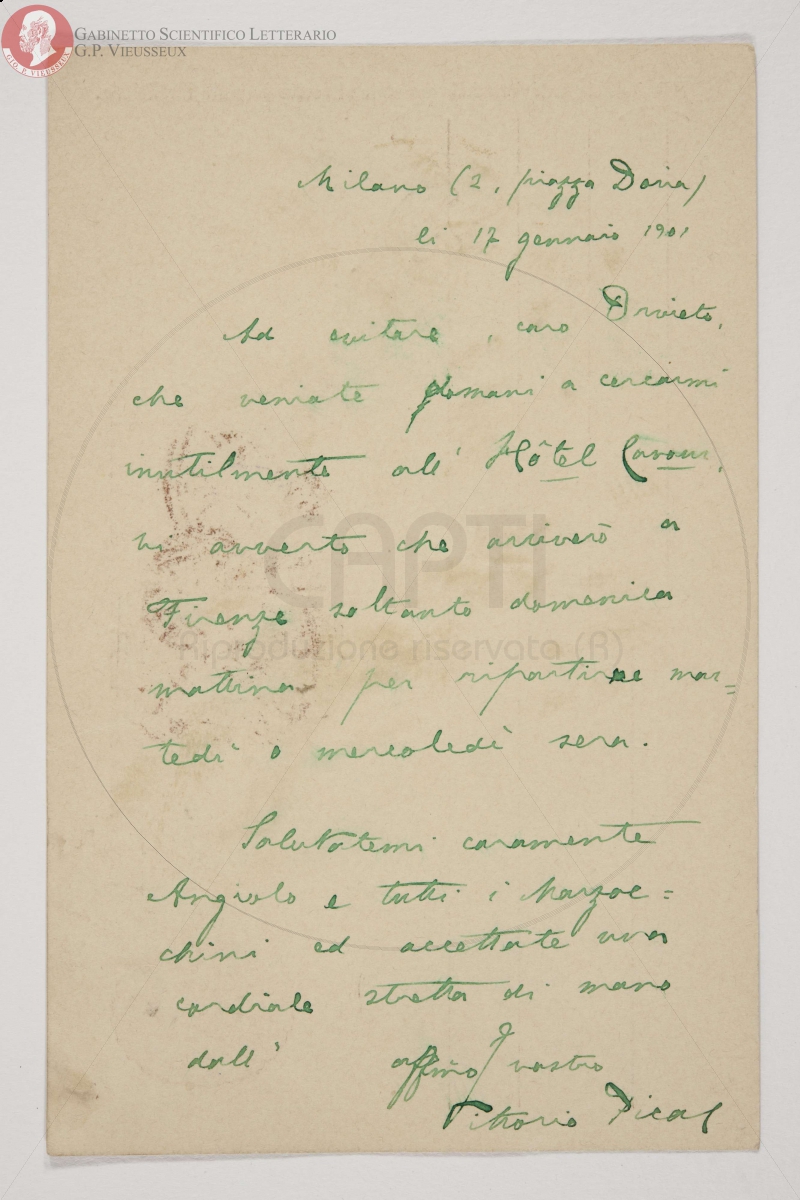 Gabinetto Scientifico Letterario
G.P. Vieusseux
Milano (2, piazza Doria)
li 17 gennaio 1901
Ad evitare, caro Orvieto,
che veniate domani a cercarmi
inutilmente all' Hôtel Cavour,
vi avverto che arriverò a
Firenze soltanto domenica
mattina per ripartire mar=
tedì o mercoledì sera.
Salutatemi caramente
Angiolo e tutti i Marzoc=
chini ed accettate una
cordiale stretta di mano
dall' affmo vostro
Vittorio Pica
CAPTI
Riproduzione riservata (R)
GIO. P. VIEUSSEUX